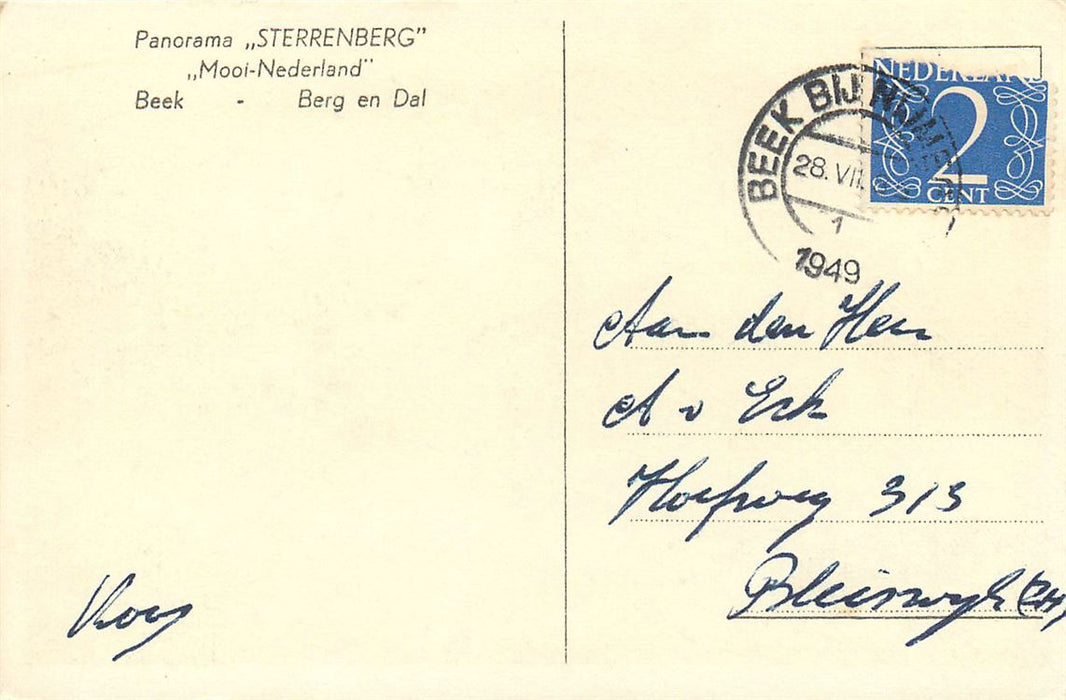 Panorama „STERRENBERG”
„Mooi-Nederland”
Beek - Berg en Dal
Koos
BEEK BIJ NIJMEGEN
28. VII.
1
1949
NEDERLAND
2
CENT
Aan den Heer
A v Eck
Hoefweg 313
Bleiswyk (ZH)